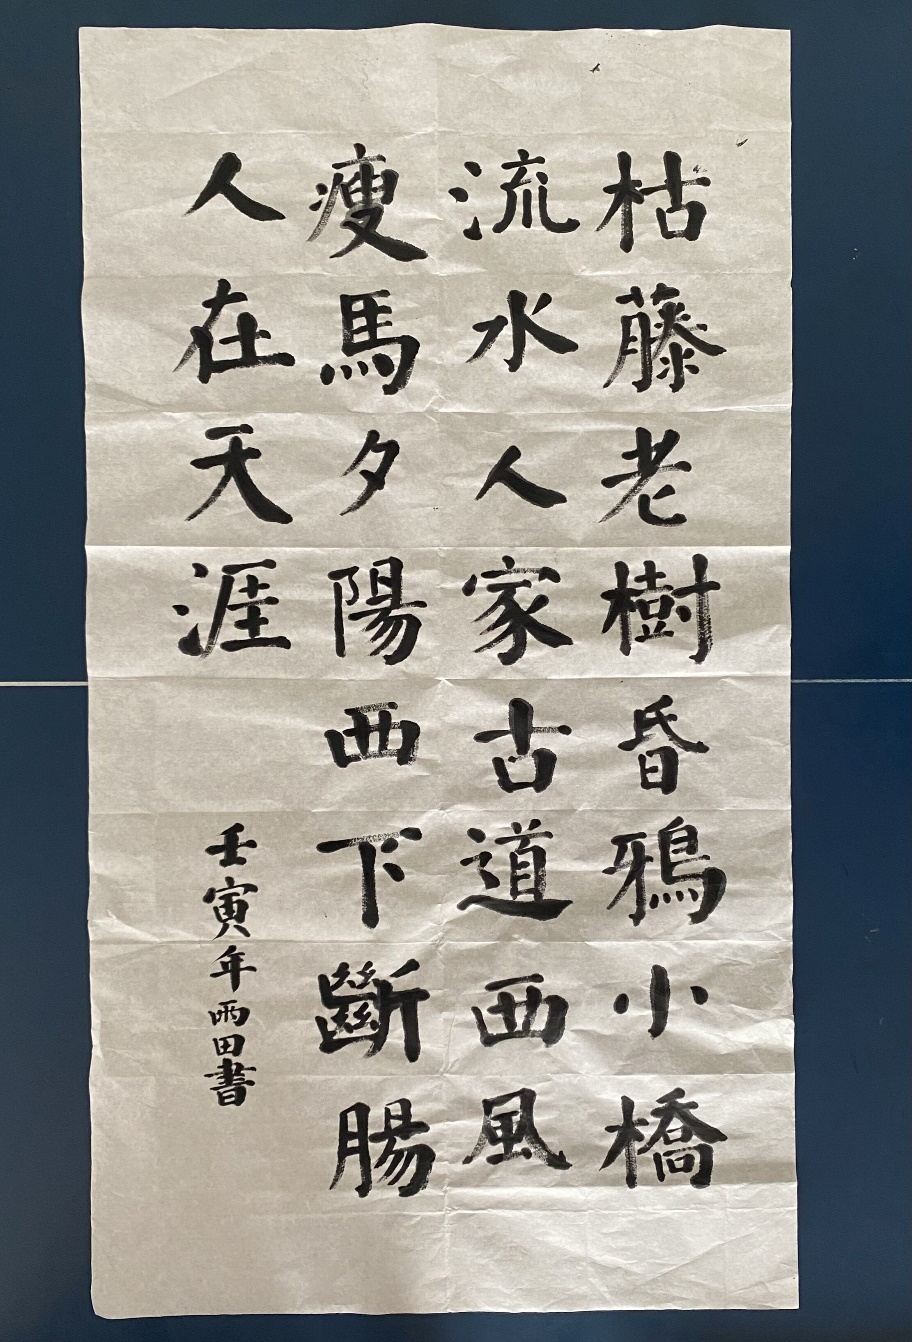 枯藤老樹昏鴉小橋
流水人家古道西風
瘦馬夕陽西下斷腸
人在天涯
壬寅年雨田書